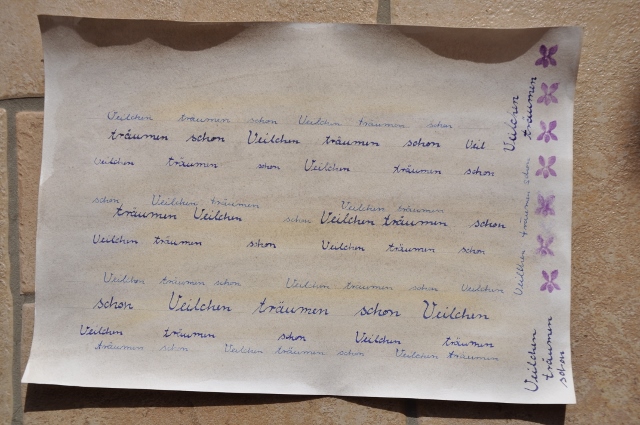 Veilchen träumen schon Veilchen träumen schon
träumen schon Veilchen träumen schon Veil
Veilchen träumen schon Veilchen träumen schon
schon Veilchen träumen Veilchen träumen
träumen Veilchen schon Veilchen träumen schon
Veilchen träumen schon Veilchen träumen schon
Veilchen träumen schon Veilchen träumen schon Veilchen
schon Veilchen träumen schon Veilchen
Veilchen träumen schon Veilchen träumen
träumen schon Veilchen träumen schon Veilchen träumen
Veilchen
träumen
Veilchen träumen schon
Veilchen
träumen
schon